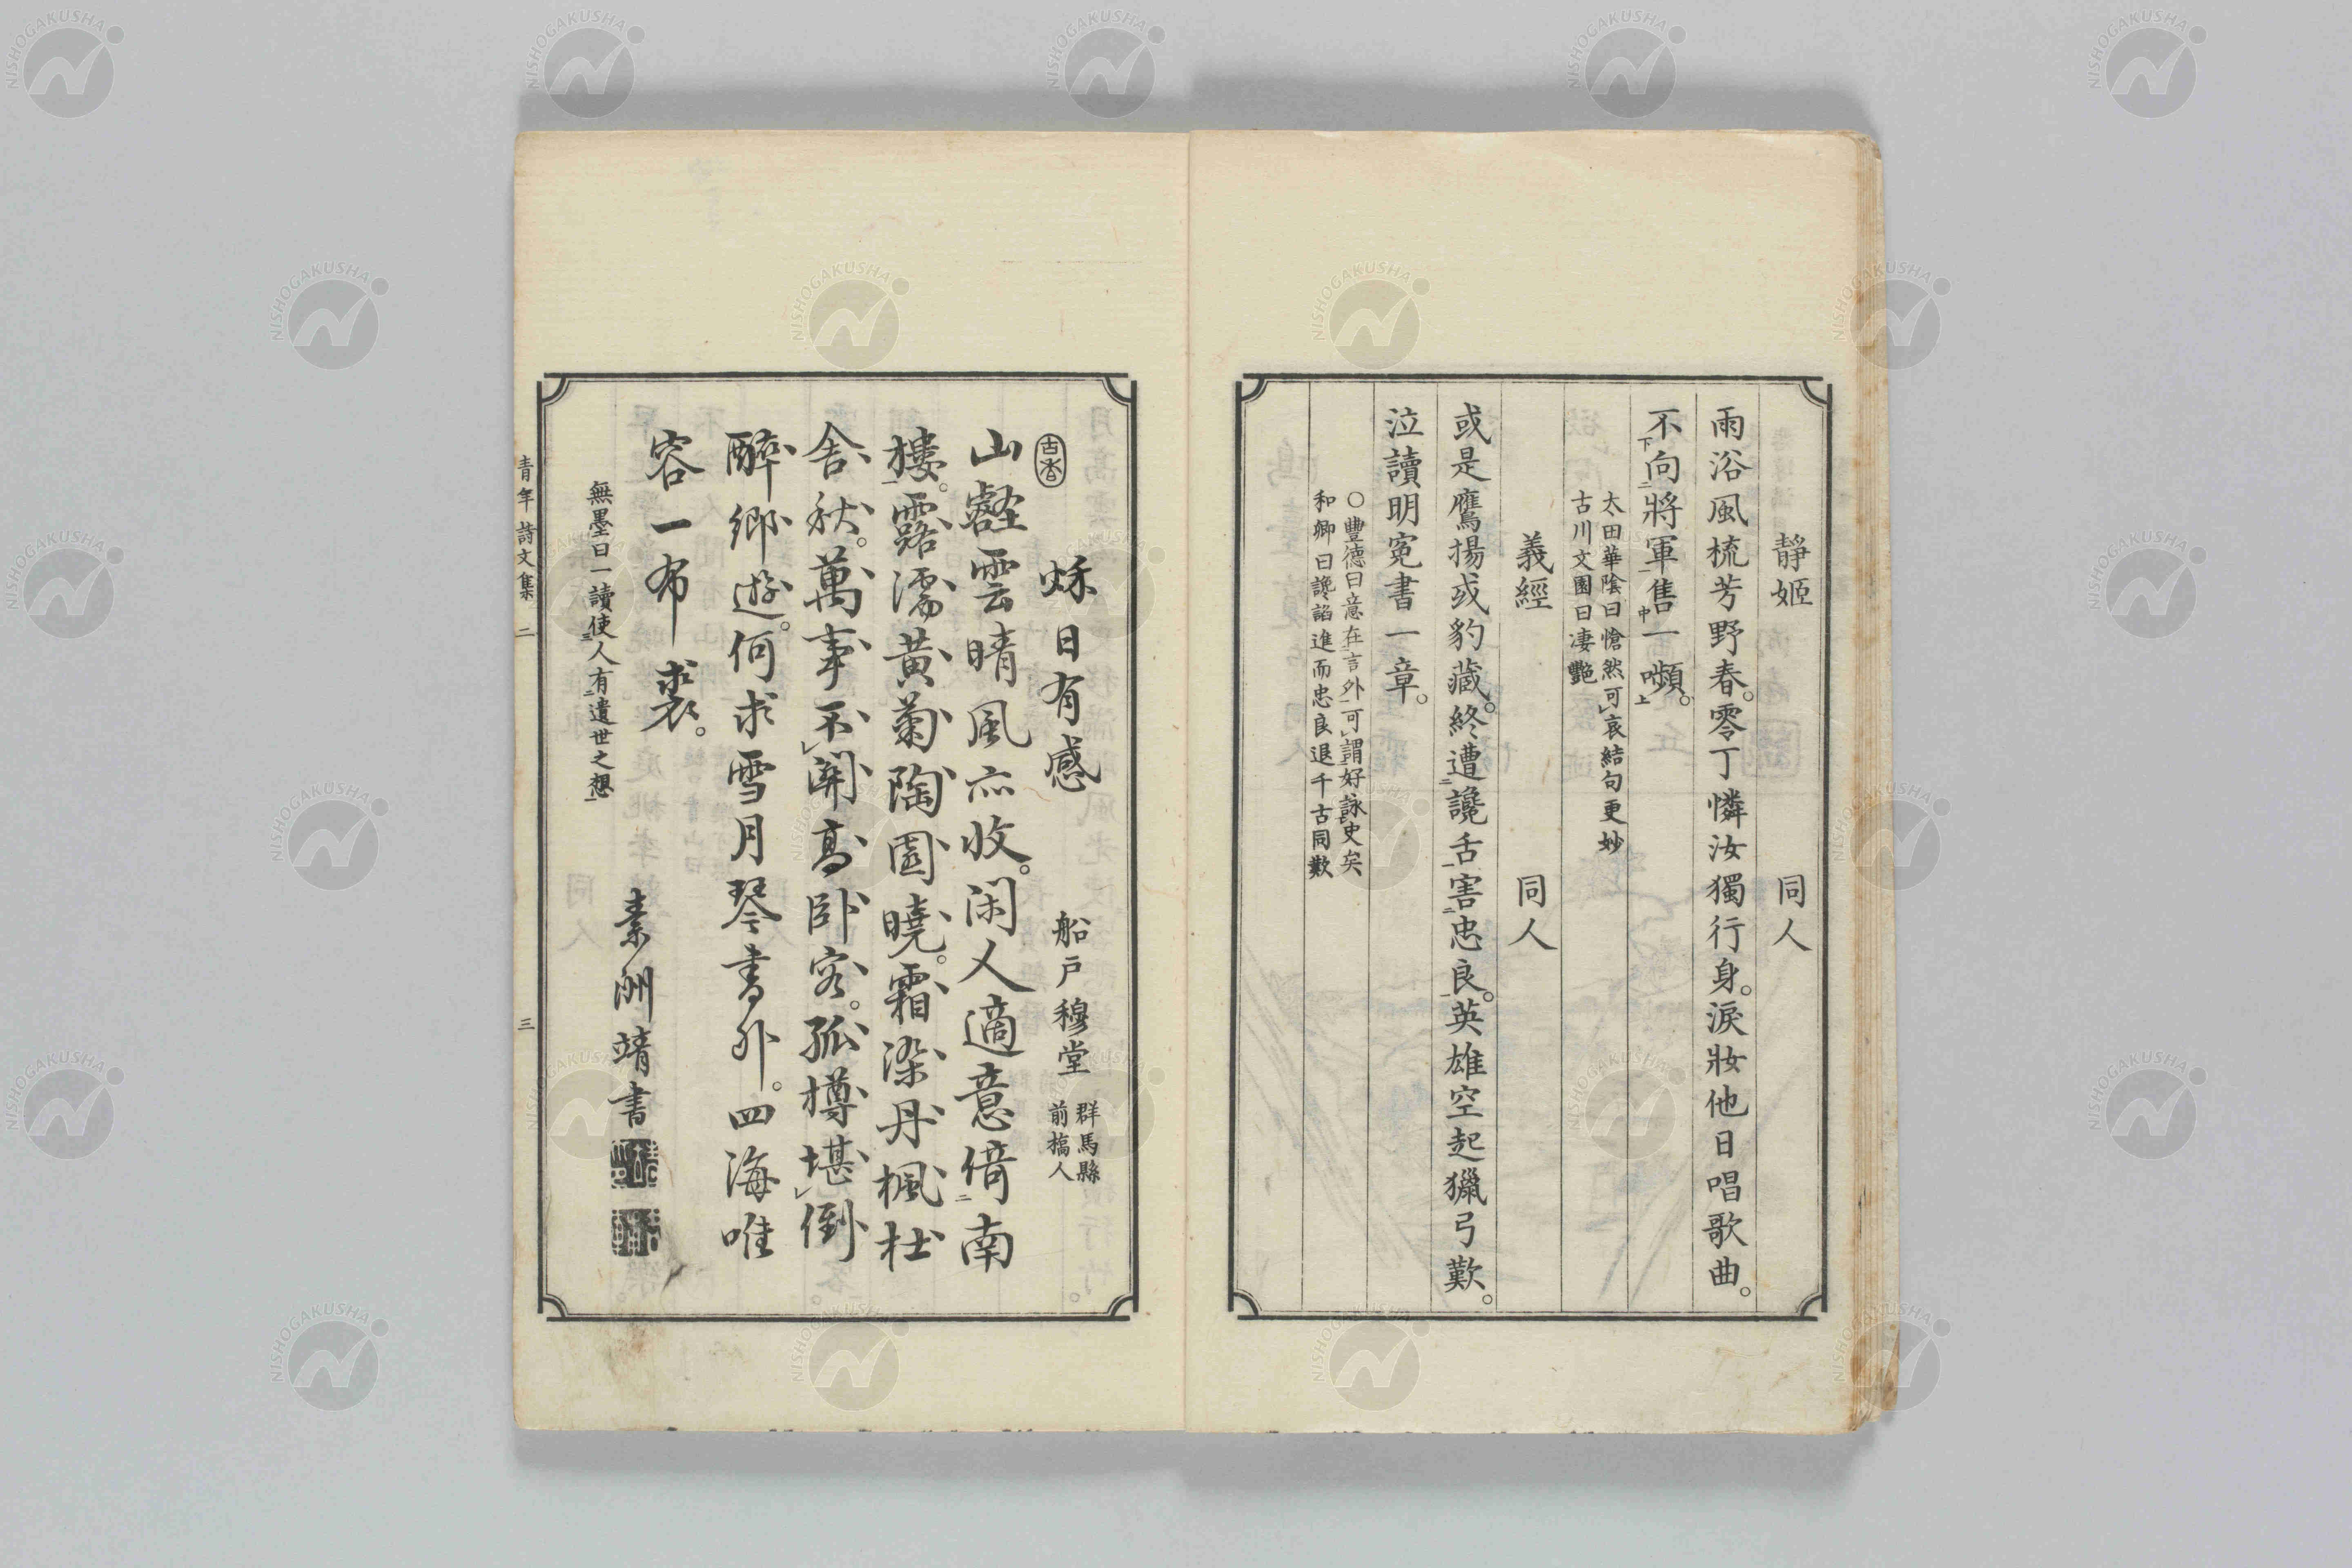 靜姬　同人
雨浴風梳芳野春。零丁憐汝獨行身。淚妝他日唱歌曲。
不下向二將軍一售中一嚬。上
太田華陰曰愴然可レ哀結句更妙
古川文園曰凄艷
義經　同人
或是鷹揚或豹藏。終遭二讒舌一害二忠良一。英雄空起獵弓歎。
泣讀明冤書一章。
○豐德曰意在二言外一可レ謂好詠史矣
和卿曰讒諂進而忠良退千古同歎
古香
秌日有感　船戸穆堂　群馬縣
前橋人
山壑雲晴風亦收。閑人適意倚二南
樓一。露濡黃菊陶園曉。霜染丹楓杜
舍秋。萬事不レ關高臥客。孤樽堪レ倒
醉鄉遊。何求雪月琴書外。四海唯
容一布裘。
素洲靖書
無墨曰一讀使三人有二遺世之想一
青年詩文集　二　三
NISHOGAKUSHA